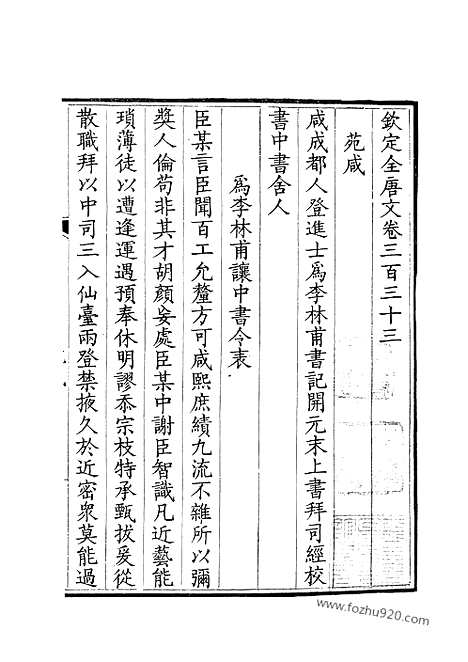 欽定全唐文卷三百三十三
苑咸
咸成都人登進士爲李林甫書記開元末上書拜司經校
書中書舍人
爲李林甫讓中書令表
臣某言臣聞百工允釐方可咸熙庶績九流不雜所以彌
獎人倫苟非其才胡顏妄處臣某中謝臣智識凡近藝能
瑣薄徒以遭逢運遇預奉休明謬忝宗枝特承甄拔爰從
散職拜以中司三入仙臺兩登禁掖久於近密衆莫能過
www.fozhu920.com